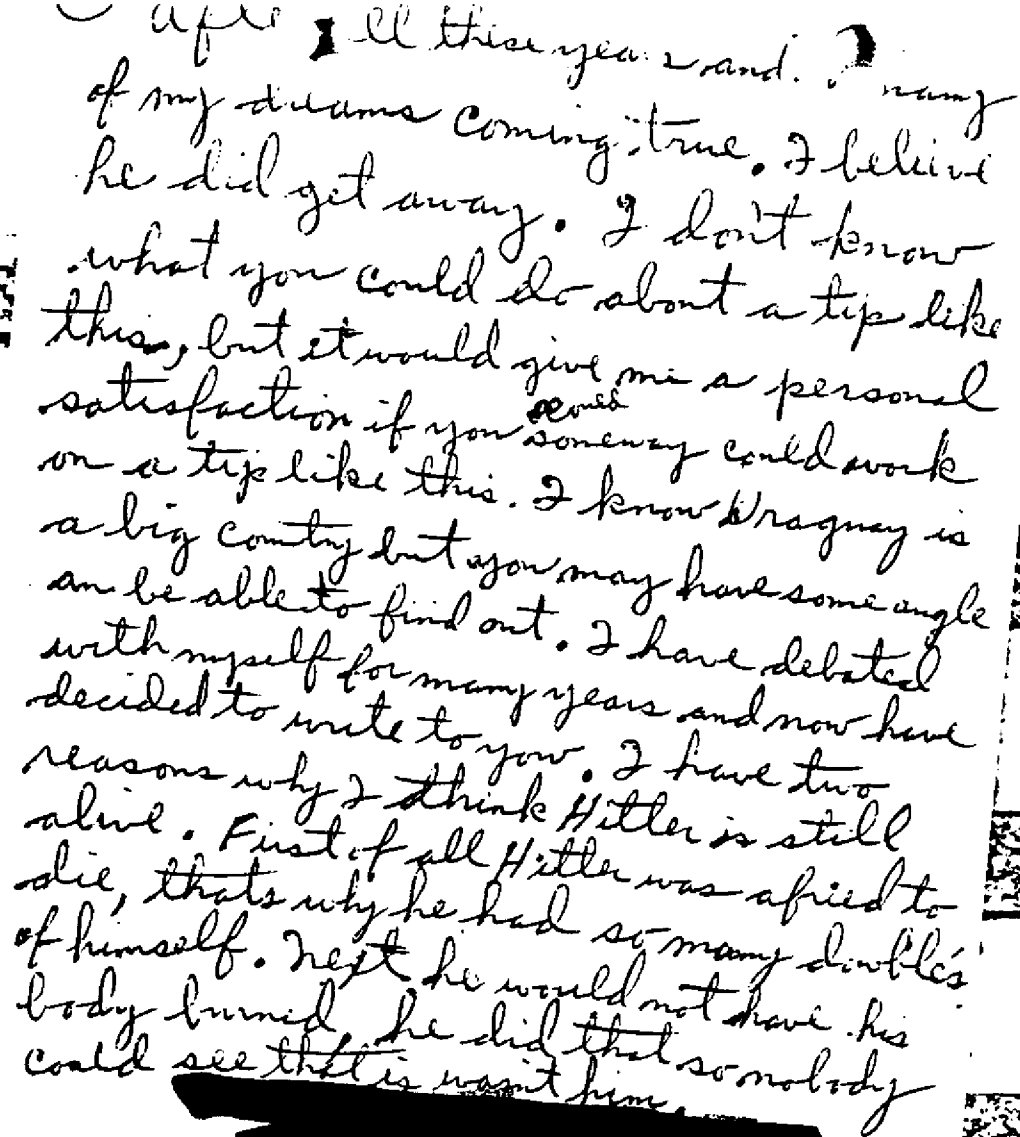 after all these years and. many
of my dreams coming true. I believe
he did get away. I don't know
what you could do about a tip like
this, but it would give me a personal
satisfaction if you someway could work
on a tip like this. I know Uraguay is
a big country but you may have some angle
an be able to find out. I have debated
with myself for many years and now have
decided to write to you. I have two
reasons why I think Hitler is still
alive. First of all Hitler was afried to
die, thats why he had so many dowble's
of himself. Next he would not have his
body burned, he did that so nobody
could see that is wasn't him.